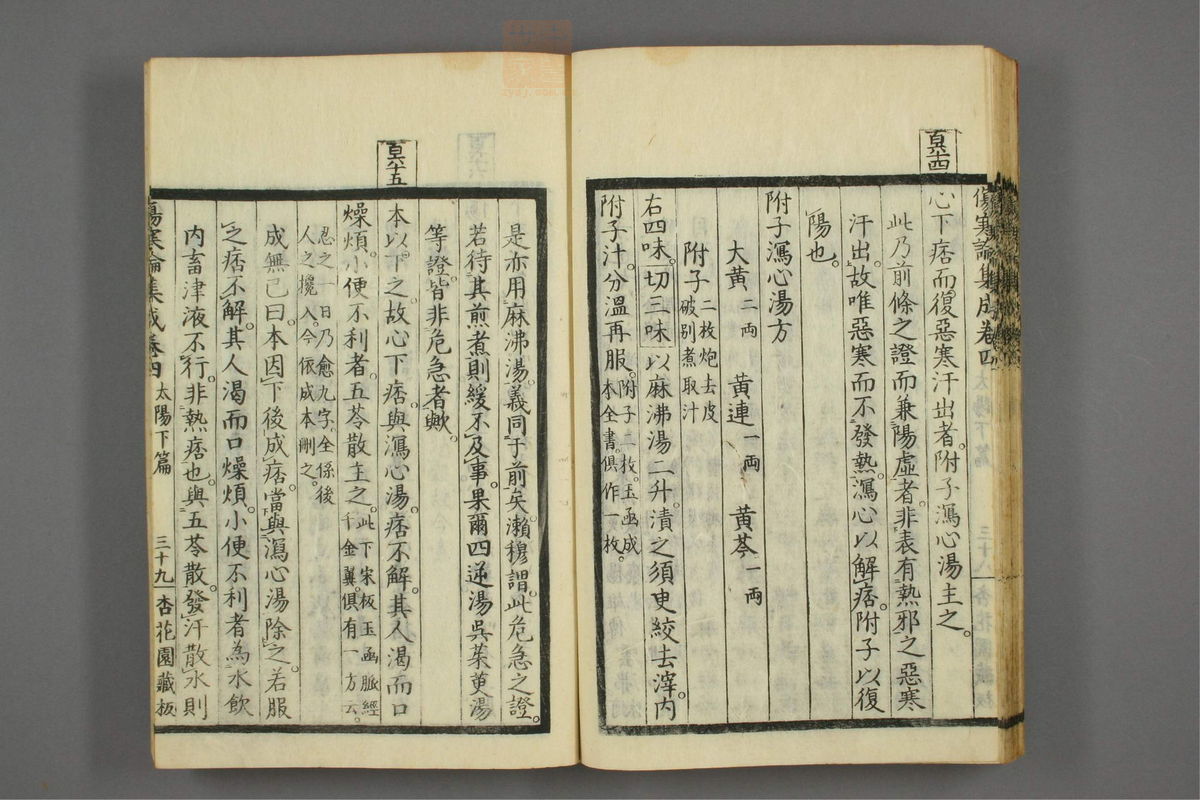 傷寒論集成卷四
百六十四
心下痞而復惡寒汗出者附子瀉心湯主之。
此乃前條之證而兼陽虛者非表有熱邪之惡寒
汗出故唯惡寒而不發熱瀉心以解痞附子以復
陽也。
附子瀉心湯方
大黃二兩 黃連一兩 黃芩一兩
附子二枚炮去皮
破別煮取汁
右四味。切三味以麻沸湯二升漬之須臾絞去滓。內
附子汁分溫再服。附子一枚玉函成
本全書。俱作一枚。
是亦用麻沸湯。義同于前矣瀨穆謂此危急之證。
若待其煎煮則緩不及事。果爾四逆湯吳茱萸湯
等證。皆非危急者歟。
百六十五
本以下之。故心下痞。與瀉心湯。痞不解。其人渴而口
燥煩。小便不利者。五苓散主之。此下宋板玉函脈經
千金翼俱有一方云。
忍之一日乃愈九字。全係後
人之攙入。今依成本刪之。
成無己曰。本因下後成痞當與瀉心湯除之。若服
之痞不解。其人渴而口燥煩。小便不利者為水飲
內畜津液不行。非熱痞也。與五苓散。發汗散水則
傷寒論集成卷四 太陽下篇 三十九 杏花園藏板